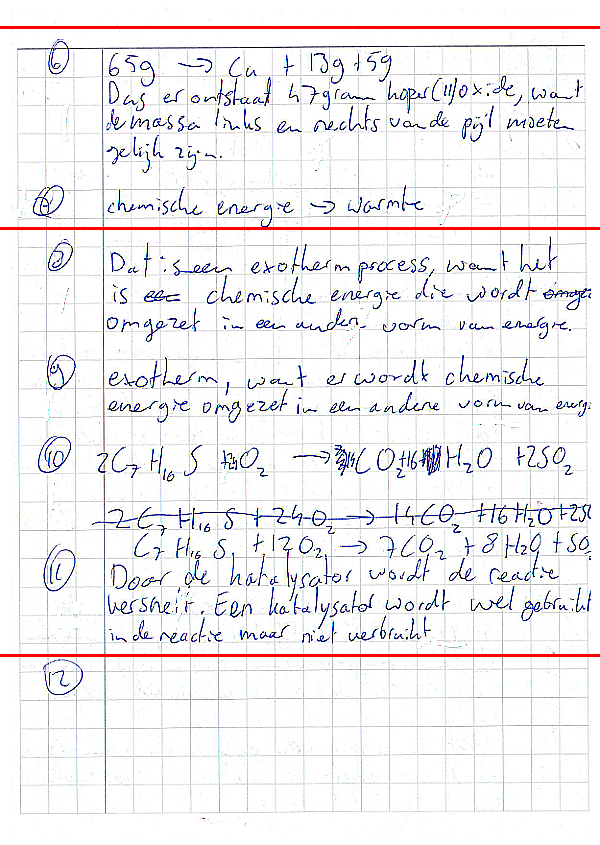 6 65g → Cu + 13g + 5g
Dus er ontstaat 47 gram koper(II)oxide, want
de massa links en rechts van de pijl moeten
gelijk zijn.
7 chemische energie → warmte
8 Dat is een exotherm process, want het
is chemische energie die wordt
omgezet in een andere vorm van energie.
9 exotherm, want er wordt chemische
energie omgezet in een andere vorm van energi
10 2C₇H₁₆S + 24O₂ → 14CO₂ + 16H₂O + 2SO₂
2C₇H₁₆S + 24O₂ → 14CO₂ + 16H₂O + 2SO
C₇H₁₆S + 12O₂ → 7CO₂ + 8H₂O + SO₂
11 Door de katalysator wordt de reactie
versneit. Een katalysator wordt wel gebruikt
in de reactie maar niet verbruikt
12